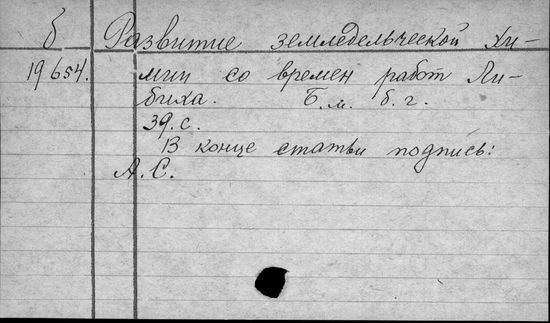 б Развитие земледельческой хи-
19654. мии со времен работ Ли-
биха. Б.м. б.г.
39.с.
В конце статьи подпись:
А.С.